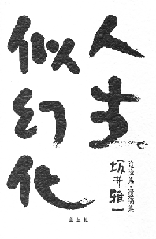 人生
似幻化
坂井雅一